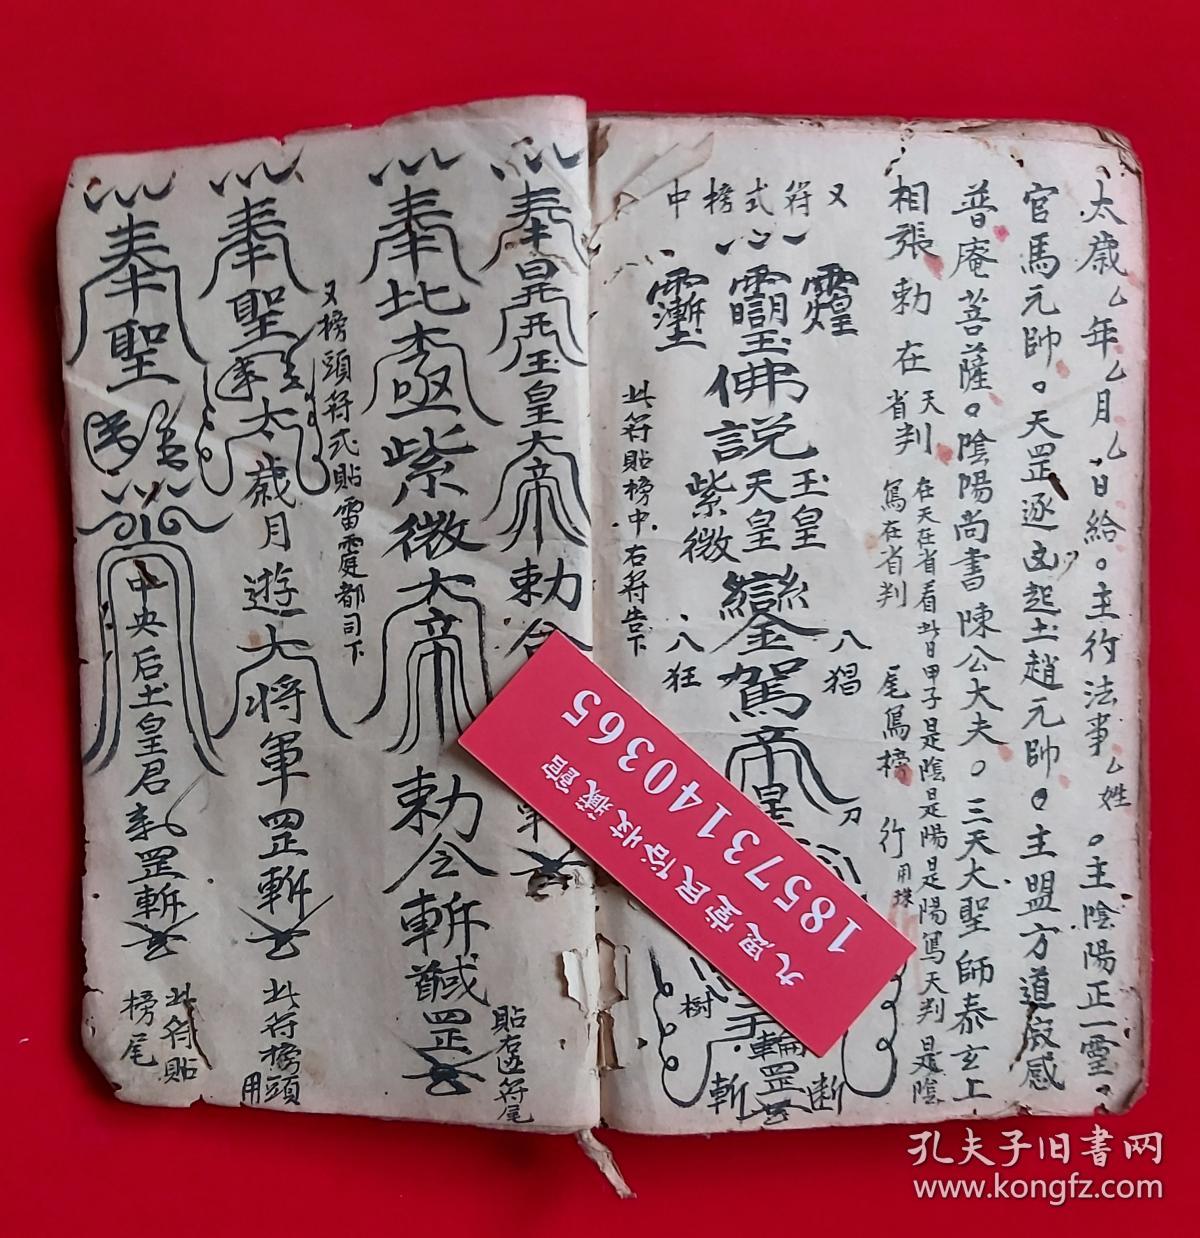 太歲乙年乙月乙日給。主行法事乙姓。主陰陽正一靈。
官馬元帥。天罡逐
起土趙元帥。主盟方道
感
普庵菩薩。陰陽尚書陳公大夫。三天大聖師泰玄上
相張勅在
天判
省判
在天在省看此日甲子是陰是陽是陽寫天判是陰
寫在省判
尾寫榜
行用珠
又符式榜中
佛說
玉皇
天皇
紫微
鑾駕帝
八猖
八狂
刀
樹
輪罡
斬
斷
此符貼榜中右符告下
奉
玉皇大帝勅令
貼右邊符尾
奉北
紫微大帝勅令斬
罡
又榜頭符式貼雷霆都司下
奉聖
太歲月遊大將軍罡斬
此符榜頭用
奉聖
中央后土皇君
罡斬
此符貼榜尾
九思堂民俗收藏館
18573140365
孔夫子旧書网
www.kongfz.com